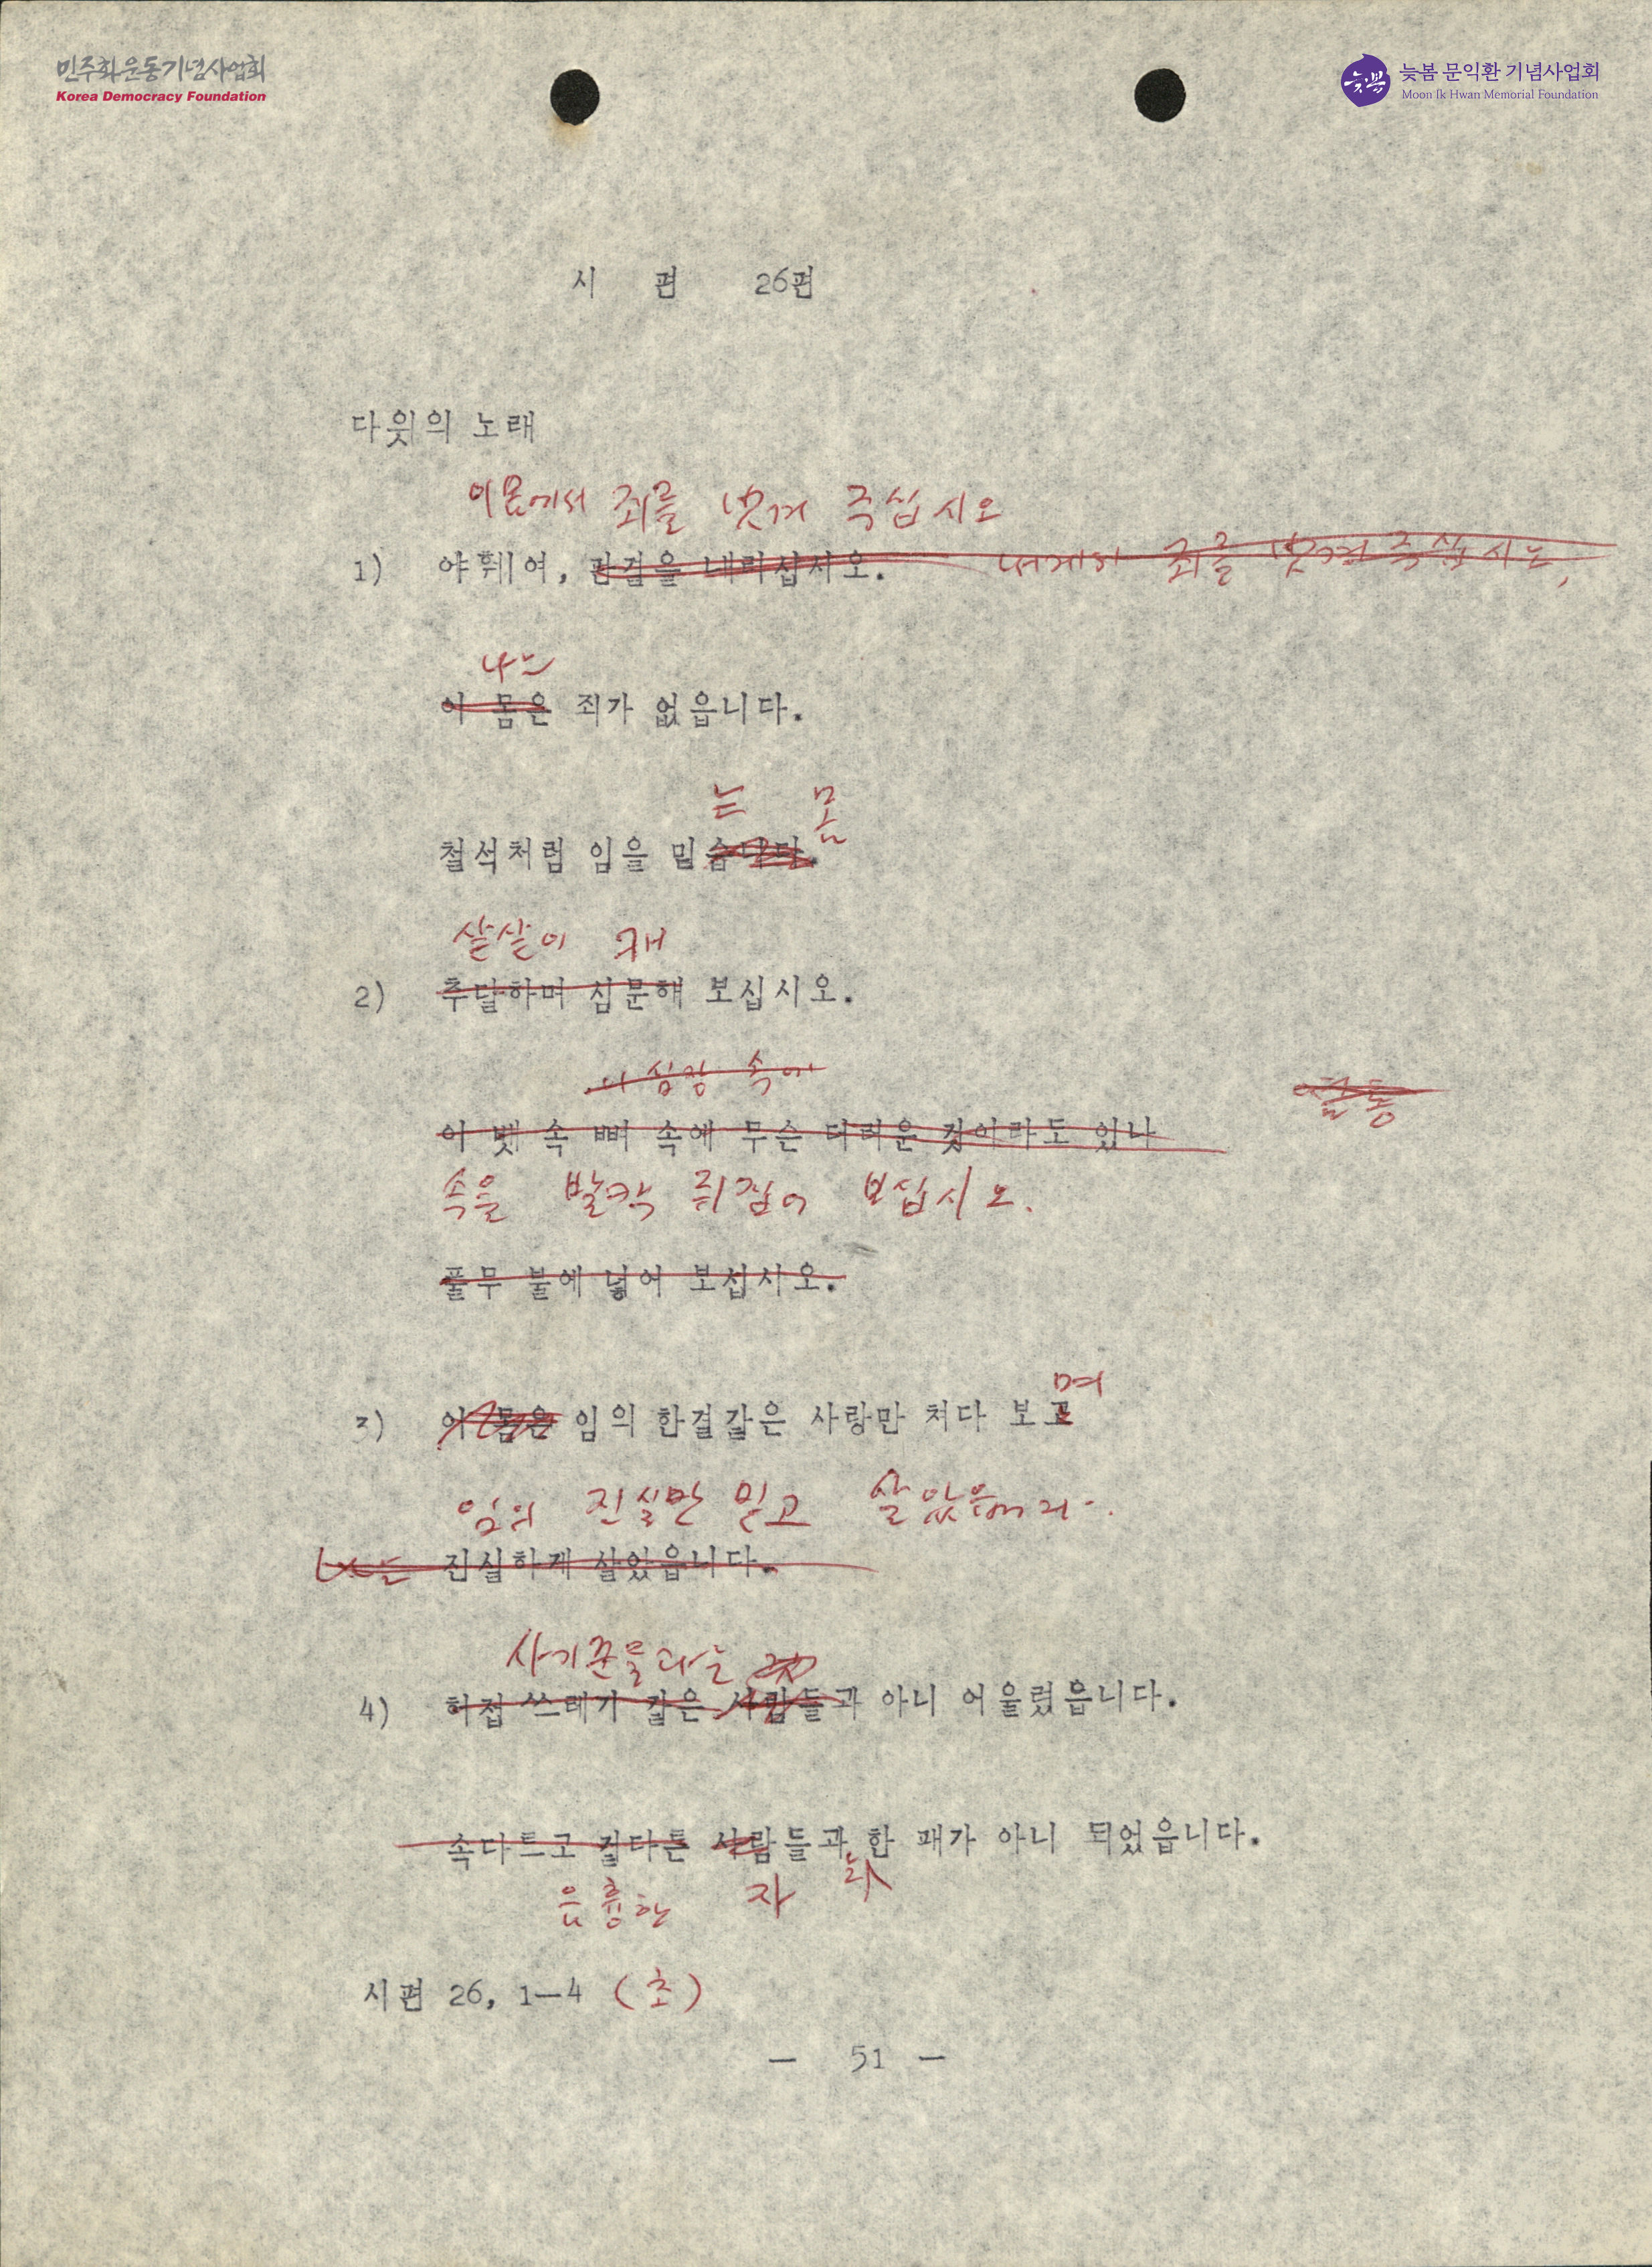 민주화운동기념사업회
Korea Democracy Foundation
늦봄
늦봄 문익환 기념사업회
Moon Ik Hwan Memorial Foundation
시 편 26편
다윗의 노래
이몸에서 죄를 벗겨 주십시오
1) 야훼여, 판결을 내리십시오. 죄를 벗겨 주십시오,
나는
이 몸은 죄가 없읍니다.
는 몸
철석처럼 임을 믿습니다.
샅샅이 캐
2) 추달하며 심문해 보십시오.
심장 속에
이 뱃 속 뼈 속에 무슨 더러운 것이라도 있나
속을 발칵 뒤집어 보십시오.
풀무 불에 넣어 보십시오.
며
3) 이 몸은 임의 한결같은 사랑만 처다 보고
임의 진실만 믿고 살았
나는 진실하게 살았읍니다.
사기꾼들과는
4) 허접 쓰레기 같은 사람들과 아니 어울렸읍니다.
속다르고 겉다른 사람들과 한 패가 아니 되었읍니다.
음흉한 자
시편 26, 1—4 (초)
— 51 —